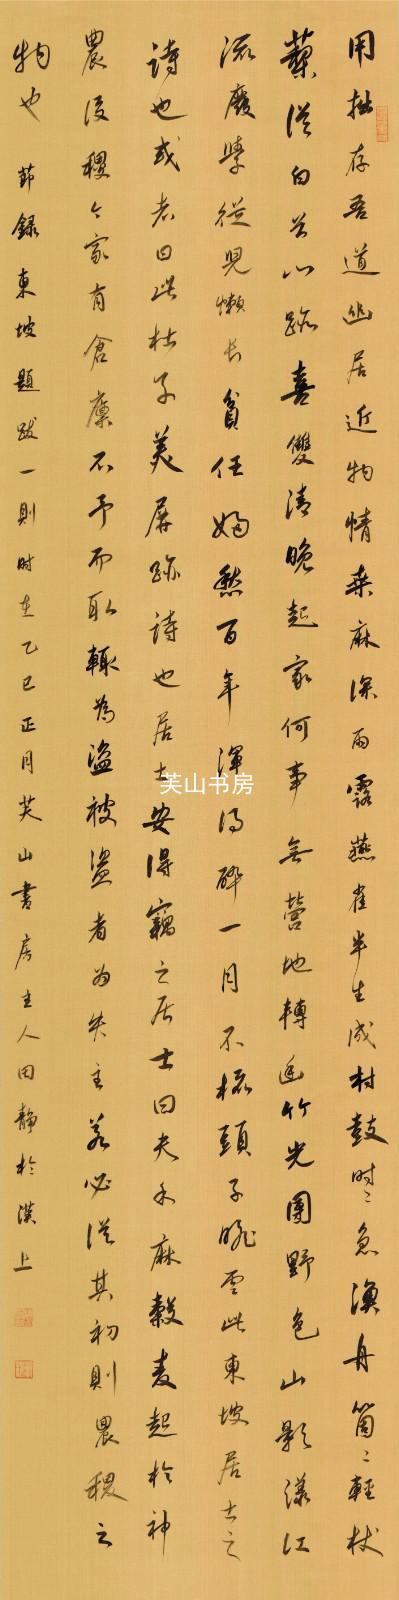 用拙存吾道幽居近物情桑麻深雨露燕雀半生成村鼓时々急漁舟箇々輕杖
藜從白首心跡喜雙清晚起家何事無營地轉幽竹光團野色山影漾江
流廢學從兒懶長貧任婦愁百年渾得醉一月不梳頭子瞻雲此東坡居士之
詩也或者曰此杜子美屏跡詩也居士安得竊之居士曰夫禾麻穀麦起於神
農后稷今家有倉廩不予而取輒為盜被盜者為失主若必從其初則農稷之
物也 節録東坡題跋一則时在乙巳正月芙山書房主人田静於漢上
芙山书房